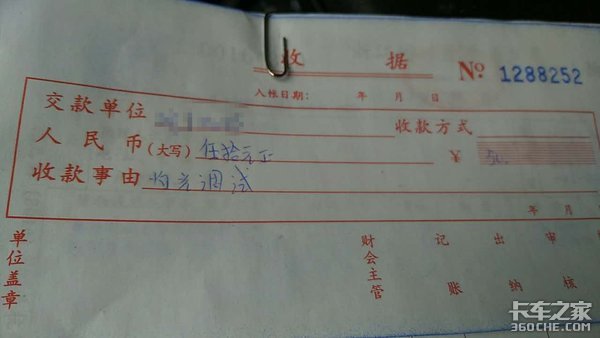 收 据 № 1288252
入帐日期： 年 月 日
交款单位 收款方式
人民币(大写) 伍拾元正 ¥ 50.
收款事由 灯光调试
年 月
单位盖章 财会主管 记账 出纳 审核
卡车之家
360CHE.COM